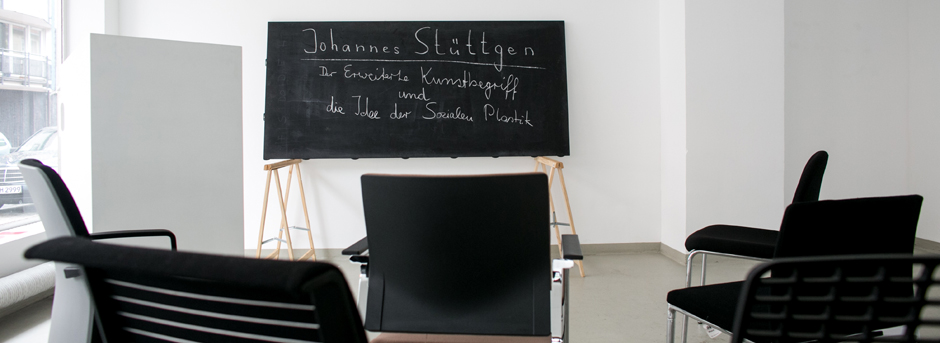 Johannes Stüttgen
Der Erweiterte Kunstbegriff
und
die Idee der Sozialen Plastik